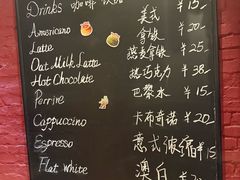 Drinks 咖啡 饮品
Americano 美式 ¥15
Latte 拿铁 ¥20
Oat Milk Latte 燕麦拿铁 ¥25
Hot Chocolate 热巧克力 ¥38
Perrire 巴黎水 ¥15
Cappuccino 卡布奇诺 ¥20
Espresso 意式浓缩 ¥15
Flat White 澳白